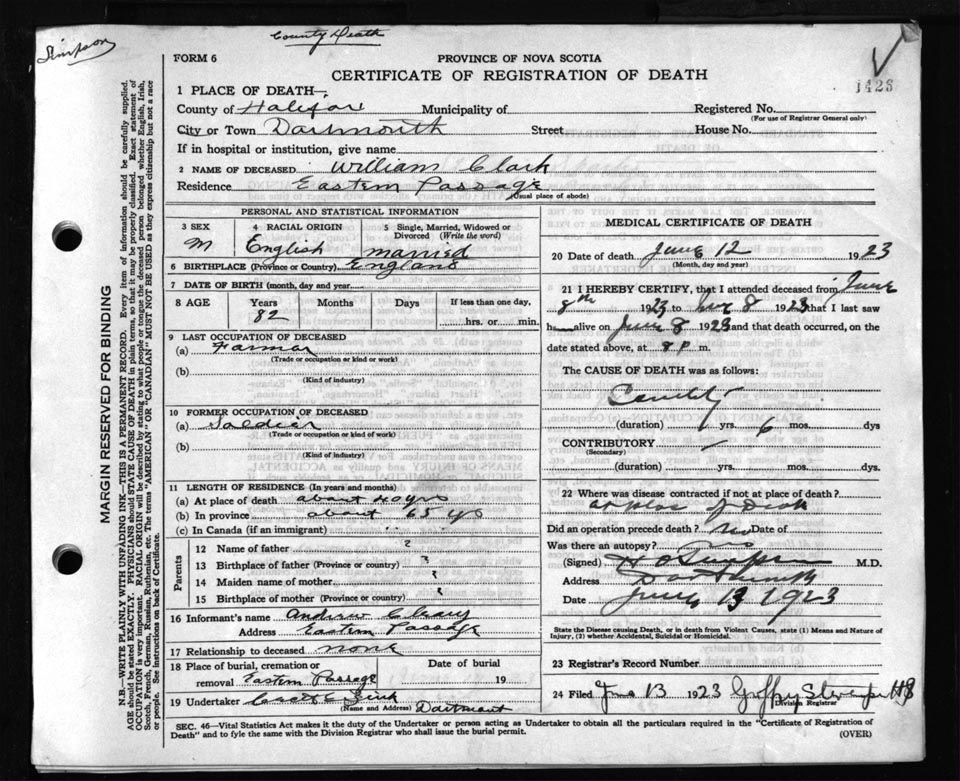 Simpson
County Death
1426
FORM 6
PROVINCE OF NOVA SCOTIA
CERTIFICATE OF REGISTRATION OF DEATH
1 PLACE OF DEATH—
County of Halifax Municipality of Registered No.
(For use of Registrar General only)
City or Town Dartmouth Street House No.
If in hospital or institution, give name
2 NAME OF DECEASED William Clark
Residence Eastern Passage
(Usual place of abode)
PERSONAL AND STATISTICAL INFORMATION
3 SEX 4 RACIAL ORIGIN 5 Single, Married, Widowed or
Divorced (Write the word)
M English married
6 BIRTHPLACE (Province or Country) England
7 DATE OF BIRTH (month, day and year)
8 AGE Years Months Days If less than one day,
82 hrs. or min.
9 LAST OCCUPATION OF DECEASED
(a) Farmer
(Trade or occupation or kind or work)
(b)
(Kind of industry)
10 FORMER OCCUPATION OF DECEASED
(a) Soldier
(Trade or occupation or kind of work)
(b)
(Kind of industry)
11 LENGTH OF RESIDENCE (In years and months)
(a) At place of death about 40 yrs
(b) In province about 65 yrs
(c) In Canada (if an immigrant) " "
Parents
12 Name of father ?
13 Birthplace of father (Province or country) ?
14 Maiden name of mother ?
15 Birthplace of mother (Province or country) ?
16 Informant's name Andrew Cleary
Address Eastern Passage
17 Relationship to deceased none
18 Place of burial, cremation or Date of burial
removal Eastern Passage 19
19 Undertaker
(Name and Address) Dartmouth
MEDICAL CERTIFICATE OF DEATH
20 Date of death June 12 1923
(Month, day and year)
21 I HEREBY CERTIFY, that I attended deceased from June
8th 1923 to June 8 1923 that I last saw
h alive on June 8 1923 and that death occurred, on the
date stated above, at 8 P m.
The CAUSE OF DEATH was as follows:
Senility
(duration) yrs. 6 mos. dys
CONTRIBUTORY
(Secondary)
(duration) yrs. mos. dys.
22 Where was disease contracted if not at place of death?
at place of Death
Did an operation precede death? No Date of
Was there an autopsy? No
(Signed) Simpson M.D.
Address Dartmouth
Date June 13 1923
State the Disease causing Death, or in death from Violent Causes, state (1) Means and Nature of
Injury, (2) whether Accidental, Suicidal or Homicidal.
23 Registrar's Record Number
24 Filed 13 1923
Division Registrar
SEC. 46—Vital Statistics Act makes it the duty of the Undertaker or person acting as Undertaker to obtain all the particulars required in the "Certificate of Registration of
Death" and to fyle the same with the Division Registrar who shall issue the burial permit. (OVER)
MARGIN RESERVED FOR BINDING
N. B.—WRITE PLAINLY WITH UNFADING INK—THIS IS A PERMANENT RECORD. Every item of information should be carefully supplied.
AGE should be stated EXACTLY. PHYSICIANS should STATE CAUSE OF DEATH in plain terms, so that it may be properly classified. Exact statement of
OCCUPATION is very important. RACIAL ORIGIN will be described by stating to what people or tongue the deceased person belonged whether English, Irish,
Scotch, French, German, Russian, Ruthenian, etc. The terms "AMERICAN" OR "CANADIAN" MUST NOT BE USED as they express citizenship but not a race
or people. See instructions on back of Certificate.